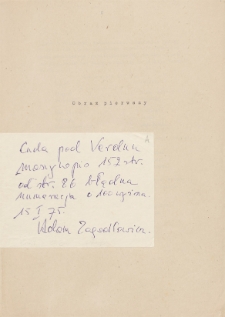 Obraz pierwszy
Cuda pod Verdun
maszynopis 152 str.
od str. 86 błędna
numeracja o 100 wyższa.
15 I 75.
Adam Zagadłowicz.